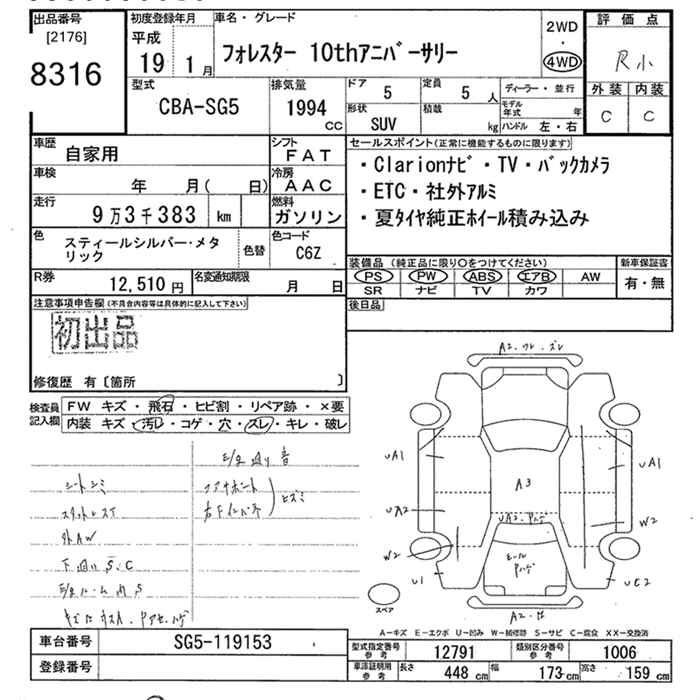 出品番号
[2176]
8316
初度登録年月
平成
19 1月
車名・グレード
フォレスター 10thアニバーサリー
2WD
・
4WD
評価点
R小
外装 内装
C C
型式
CBA-SG5
排気量
1994
CC
ドア
5
定員
5 人
形状
SUV
積載
kg
ディーラー・並行
モデル年式 年
ハンドル 左・右
車歴
自家用
シフト
FAT
車検
年 月( 日)
冷房
AAC
走行
9万3千383 km
燃料
ガソリン
色
スティールシルバー・メタリック
色替
色コード
C6Z
R券
12,510円
名変通知期限
月 日
セールスポイント(正常に機能するものに限ります)
・Clarionナビ・TV・バックカメラ
・ETC・社外アルミ
・夏タイヤ純正ホイール積み込み
装備品 (純正品に限り○をつけてください)
PS PW ABS エアB AW
SR ナビ TV カワ
新車保証書
有・無
後日品
注意事項申告欄(不具合内容等は具体的に記入して下さい)
初出品
修復歴 有〔箇所 〕
検査員記入欄
FW キズ・飛石・ヒビ割・リペア跡・×要
内装 キズ・汚レ・コゲ・穴・スレ・キレ・破レ
シートシミ
外AW
下廻りS、C
A2・ワレ・ズレ
UA1
UA1
A3
UA2
W2
W2
U1
UE2
スペア
A-キズ E-エクボ U-凹み W-補修跡 S-サビ C-腐食 XX-交換済
車台番号
SG5-119153
登録番号
型式指定番号 参考
12791
類別区分番号 参考
1006
車庫証明用 参考
長さ 448 cm
幅 173 cm
高さ 159 cm